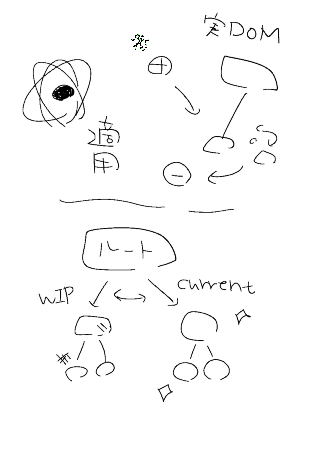 実DOM
適用
ルート
WIP
current